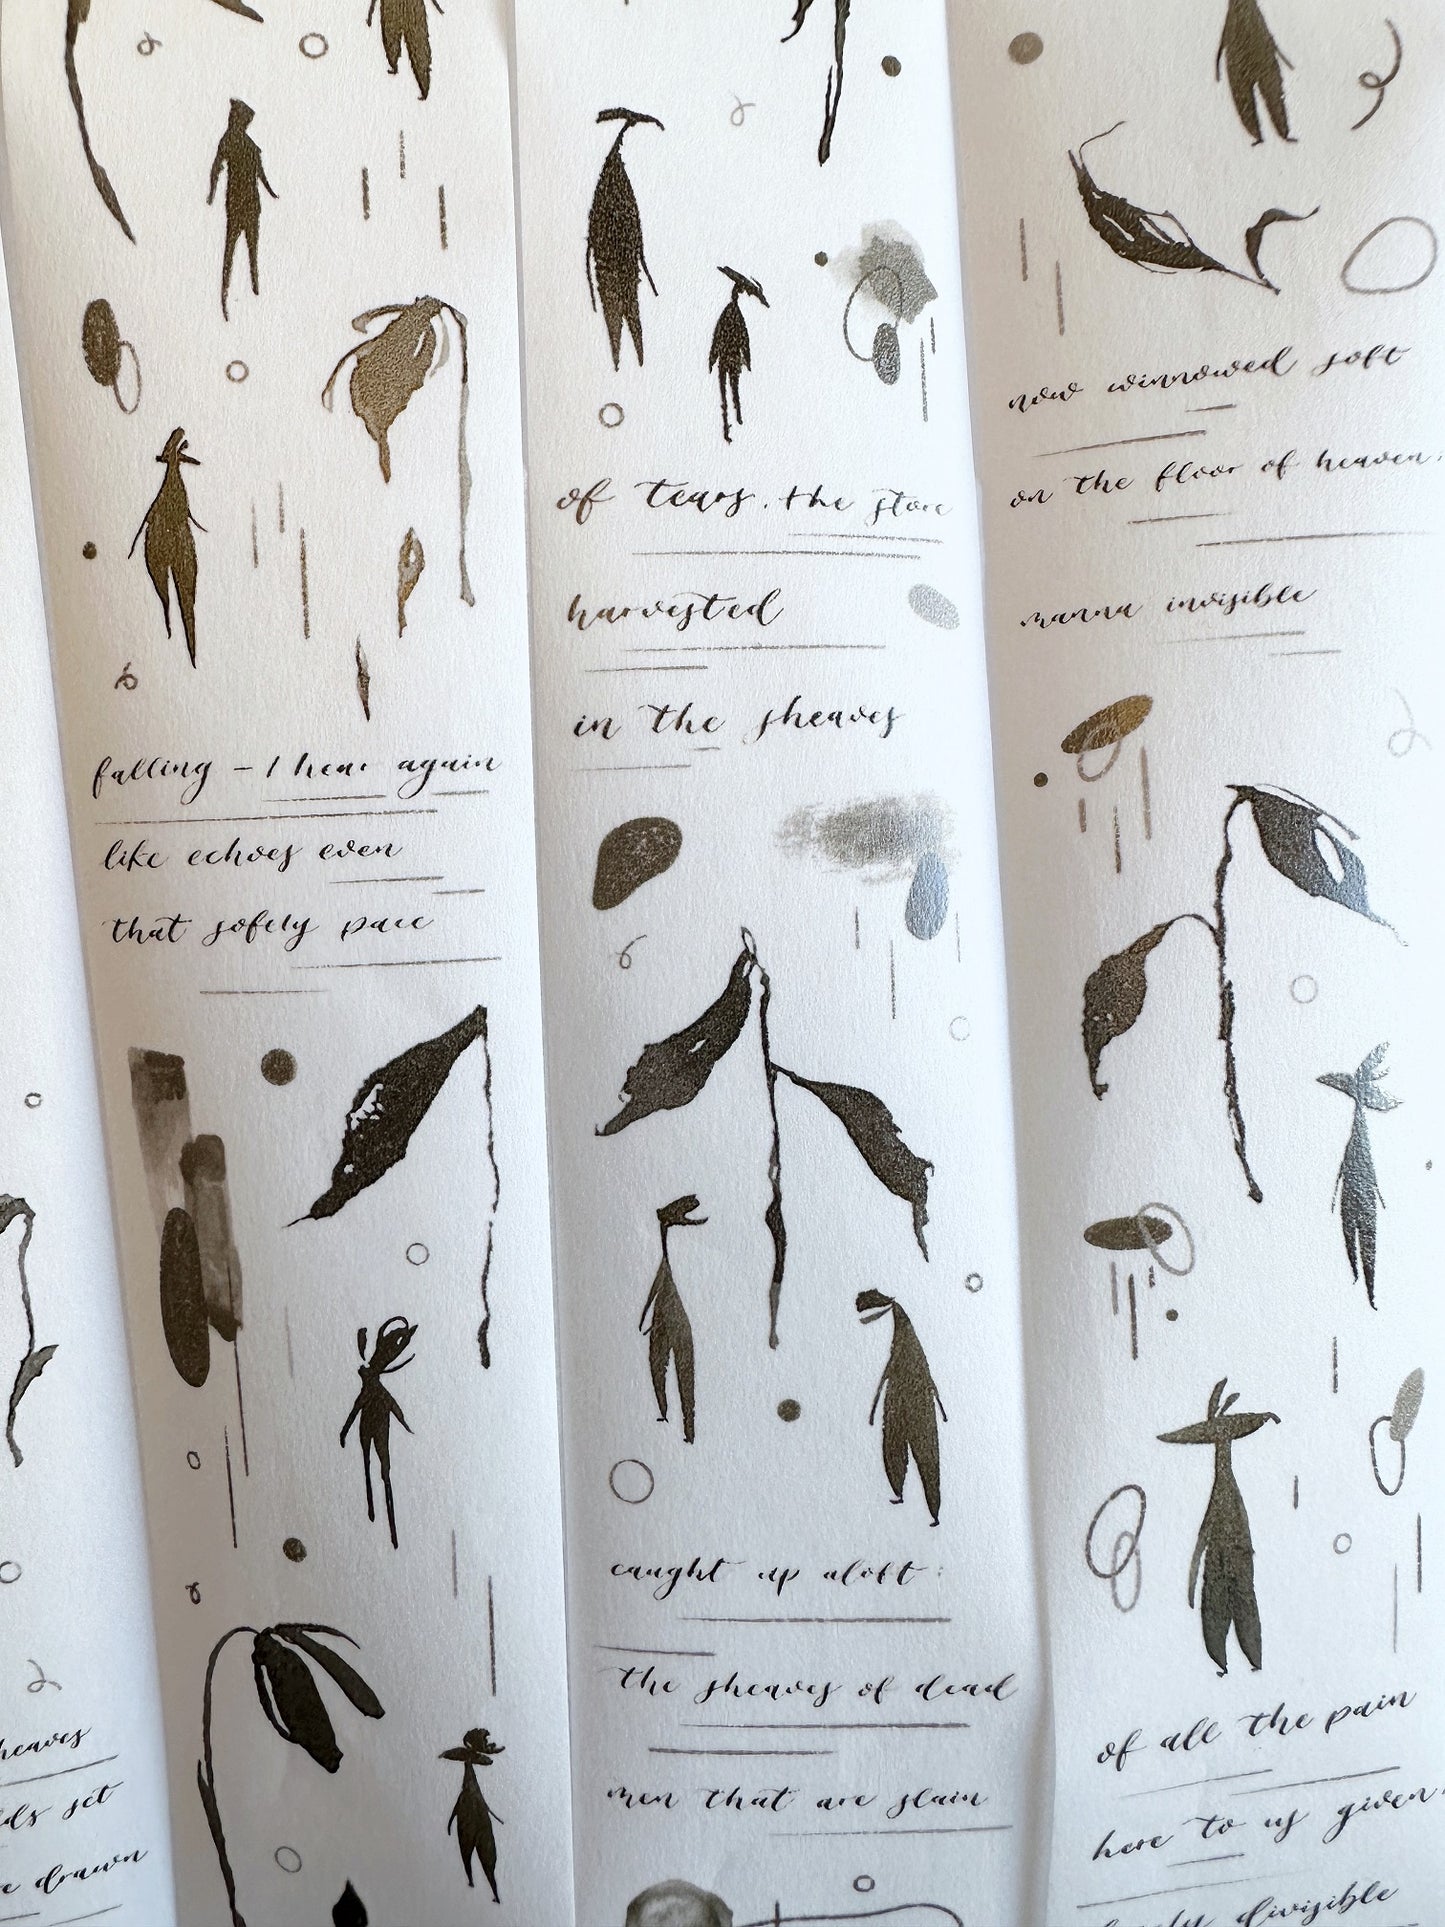 falling – I hear again
like echoes even
that softly pace
of tears. the store
harvested
in the sheaves
caught up aloft:
the sheaves of dead
men that are slain
now winnowed soft
on the floor of heaven:
manna invisible
of all the pain
here to us given:
divisible
set
drawn